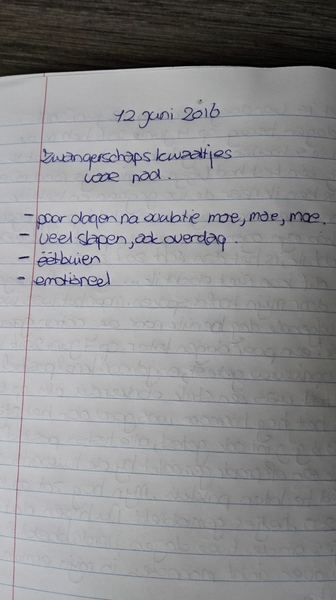 12 juni 2016
Zwangerschapskwaaltjes
voor nod.
- paar dagen na ovulatie moe, moe, moe.
- veel slapen, ook overdag.
- eetbuien
- emotioneel